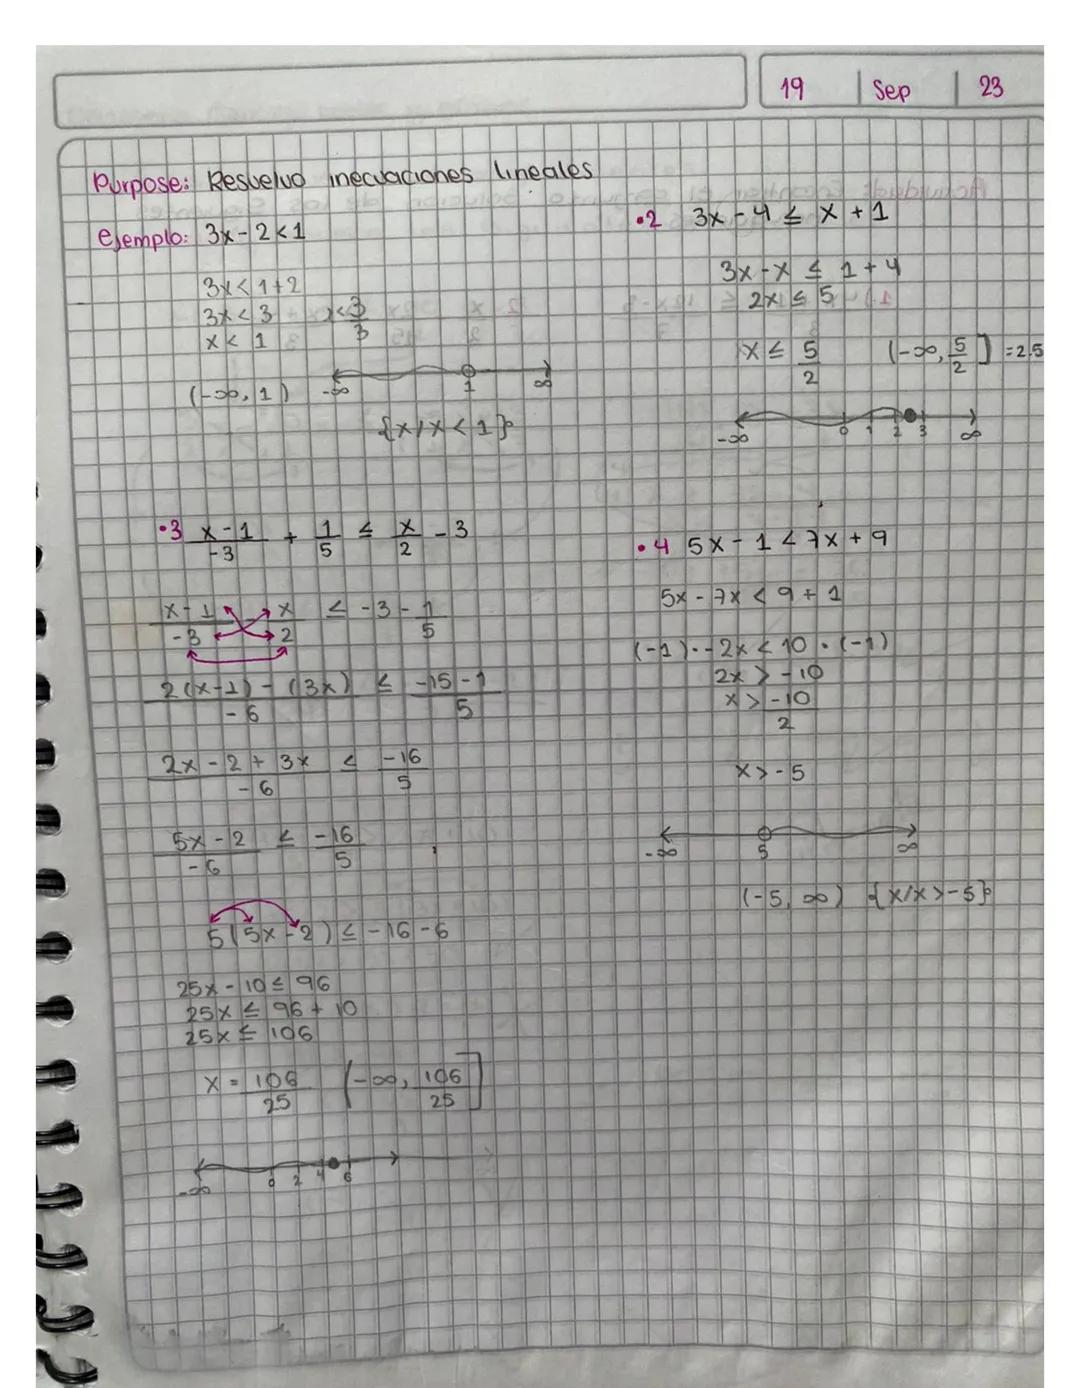 19 | Sep | 23
Purpose: Resuelvo inecuaciones lineales
Ejemplo: 3x - 2 < 1
3x < 1 + 2
3x < 3 x < 3/3
x < 1
(-∞, 1) -∞ 1 ∞
{x/x < 1}
•2 3x - 4 ≤ x + 1
3x - x ≤ 1 + 4
2x ≤ 5
x ≤ 5/2 (-∞, 5/2] = 2.5
-∞ 0 1 2 3 ∞
•3 x - 1/-3 + 1/5 ≤ x/2 - 3
x - 1/-3 - x/2 ≤ -3 - 1/5
2(x - 1) - (3x)/-6 ≤ -15 - 1/5
2x - 2 + 3x/-6 ≤ -16/5
5x - 2/-6 ≤ -16/5
5(5x - 2) ≤ -16 - 6
25x - 10 ≤ 96
25x ≤ 96 + 10
25x ≤ 106
x = 106/25 (-∞, 106/25]
-∞ 0 2 4 6
•4 5x - 1 < 7x + 9
5x - 7x < 9 + 1
(-1) · -2x < 10 · (-1)
2x > -10
x > -10/2
x > -5
-∞ 5 ∞
(-5, ∞) {x/x > -5}